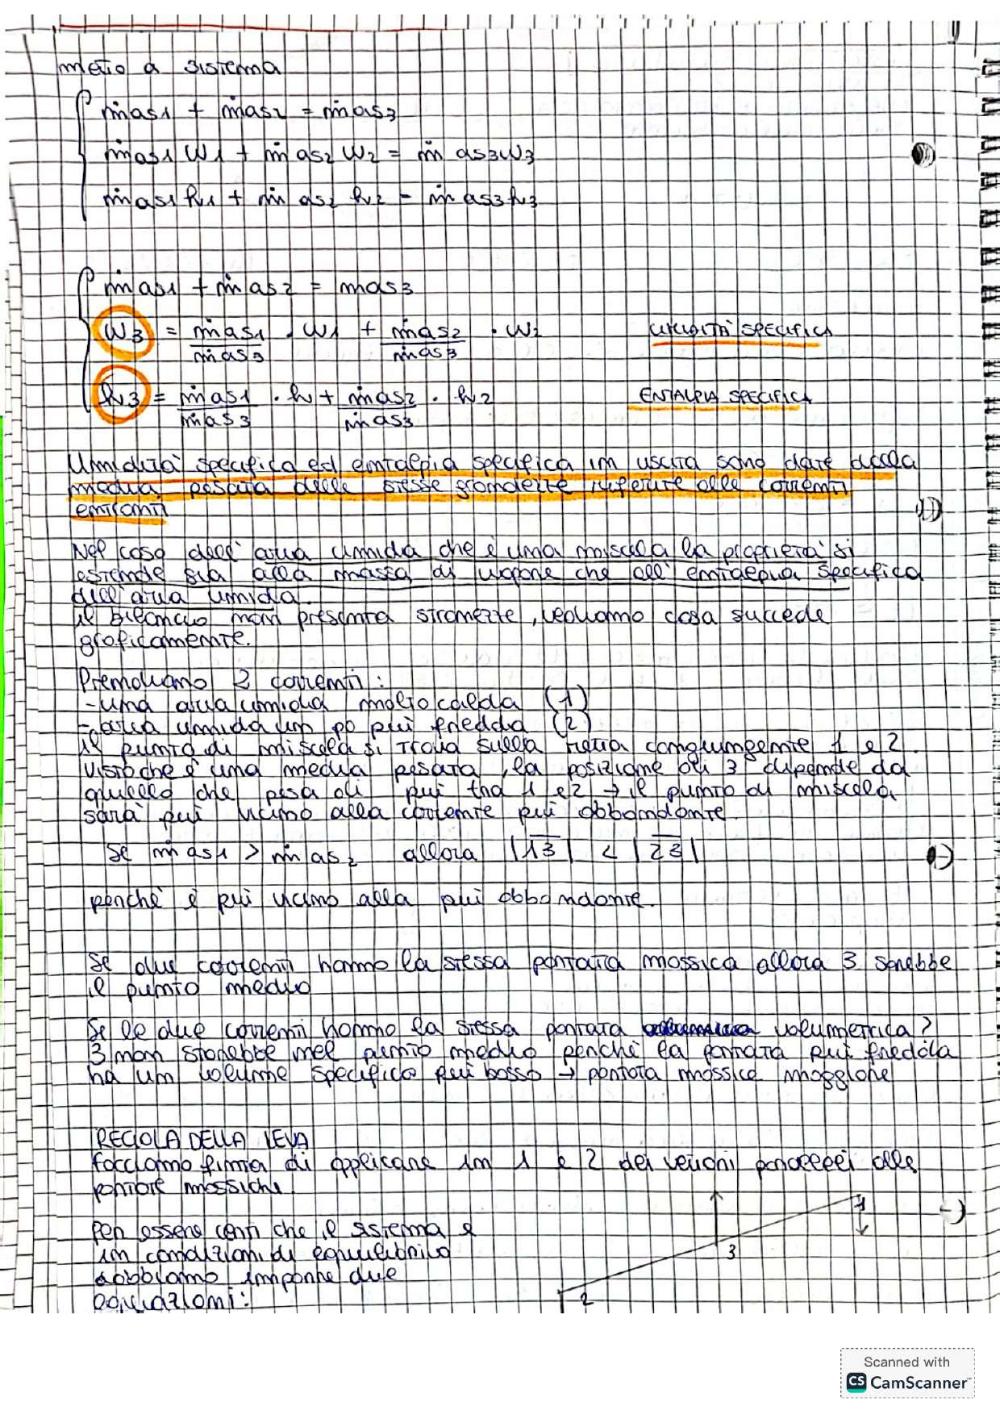 metto a sistema
ṁas1 + ṁas2 = ṁas3
ṁas1 W1 + ṁas2 W2 = ṁas3W3
ṁas1 h1 + ṁas2 h2 = ṁas3h3
ṁas1 + ṁas2 = ṁas3
W3 = ṁas1/ṁas3 · W1 + ṁas2/ṁas3 · W2 UMIDITÀ SPECIFICA
h3 = ṁas1/ṁas3 · h + ṁas2/ṁas3 · h2 ENTALPIA SPECIFICA
Umidità specifica ed entalpia specifica im uscita sono date dalla
media pesata delle stesse grandezze riferite alle correnti
entranti
Nel caso dell'aria umida che è una miscela la proprietà si
estende sia alla massa di vapore che all'entalpia specifica
dell'aria umida.
il bilancio non presenta stranezze, vediamo cosa succede
graficamente.
Prendiamo 2 correnti:
-una aria umida molto calda (1)
-aria umida un po più fredda (2)
il punto di miscela si trova sulla retta congiungente 1 e 2.
Visto che è una media pesata, la posizione di 3 dipende da
quello che pesa di più tra 1 e 2 → il punto di miscela
sarà più vicino alla corrente più abbondante.
Se ṁas1 > ṁas2 allora |13| < |23|
perchè è più vicino alla più abbondante.
Se due correnti hanno la stessa portata massica allora 3 sarebbe
il punto medio
Se le due correnti hanno la stessa portata volumetrica?
3 non starebbe nel punto medio perchè la portata più fredda
ha un volume specifico più basso → portata massica maggiore
REGOLA DELLA LEVA
facciamo finta di applicare in 1 e 2 dei vettori paralleli alle
portate massiche.
per essere certi che il sistema è
in condizioni di equilibrio
dobbiamo imporre due
equazioni:
1
3
2
Scanned with
CS CamScanner